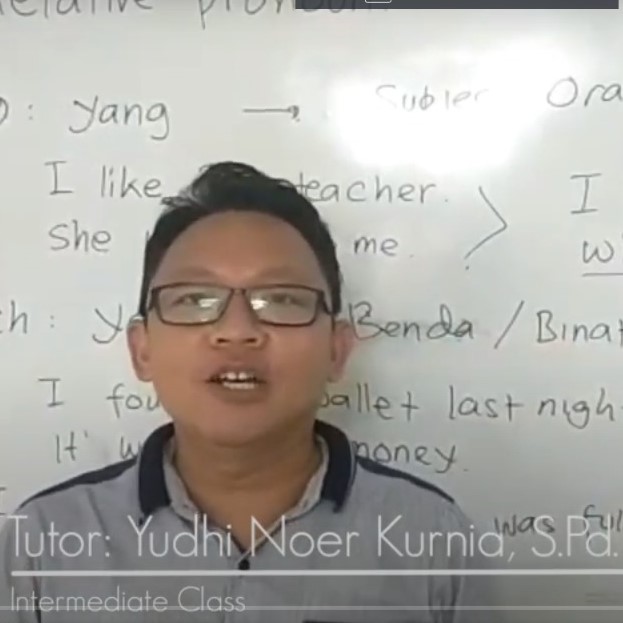 pronoun
: yang → Subjer Ora
I like teacher. > I
She me.
: Benda / Bina
I wallet last nigh
It' money.
was full
Tutor: Yudhi Noer Kurnia, S.Pd.
Intermediate Class